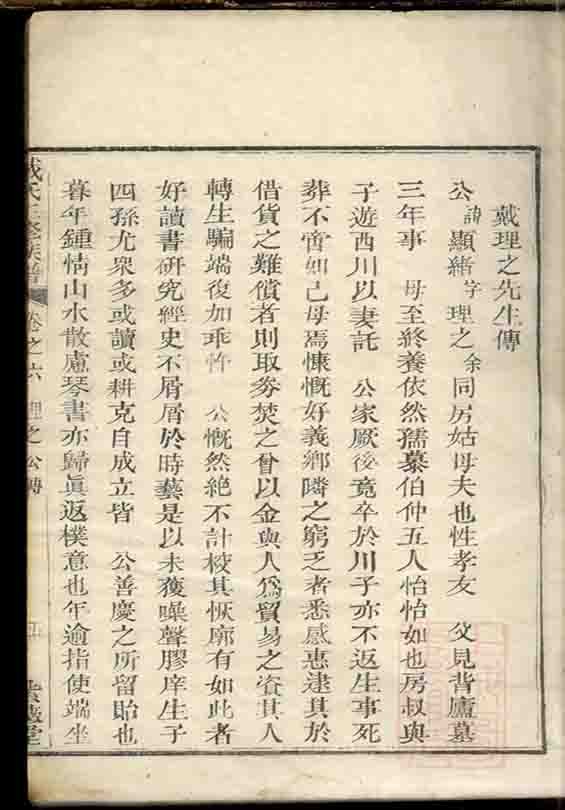 戴理之先生傳
公諱顯緒字理之余同房姑母夫也性孝友 父見背廬墓
三年事 母至終養依然孺慕伯仲五人怡怡如也房叔與
子遊西川以妻託 公家厥後竟卒於川子亦不返生事死
葬不啻如己母焉慷慨好義鄉隣之窮乏者悉感惠逮其於
借貸之難償者則取券焚之曾以金與人爲貿易之資其人
轉生騙端復加乖忤 公慨然絶不計校其恢廓有如此者
好讀書研究經史不屑屑於時藝是以未獲噪聲膠庠生子
四孫尤衆多或讀或耕克自成立皆 公善慶之所留貽也
暮年鍾情山水散慮琴書亦歸眞返樸意也年逾指使端坐
戴氏三修族譜 卷之六 理之公傳